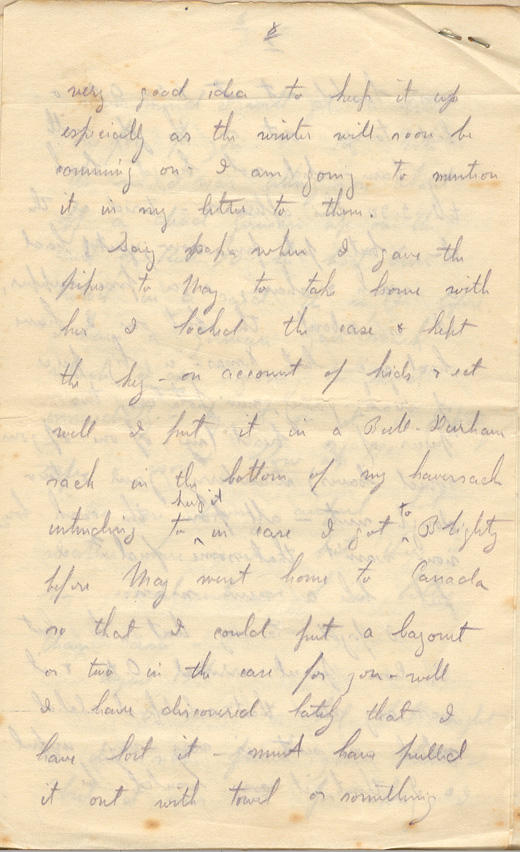 8
very good idea to keep it up
especially as the winter will soon be
comming on - I am going to mention
it in my letter to them.
Say papa when I gave the
pipes to May to take home with
her I locked the case & kept
the key - on account of kids & ect
well I put it in a Bull-Durham
sack in the bottom of my haversack
intending to keep it in case I got to Blighty
before May went home to Canada
so that I could put a bayonet
or two in the case for you - well
I have discovered lately that I
have lost it - must have pulled
it out with towel or something